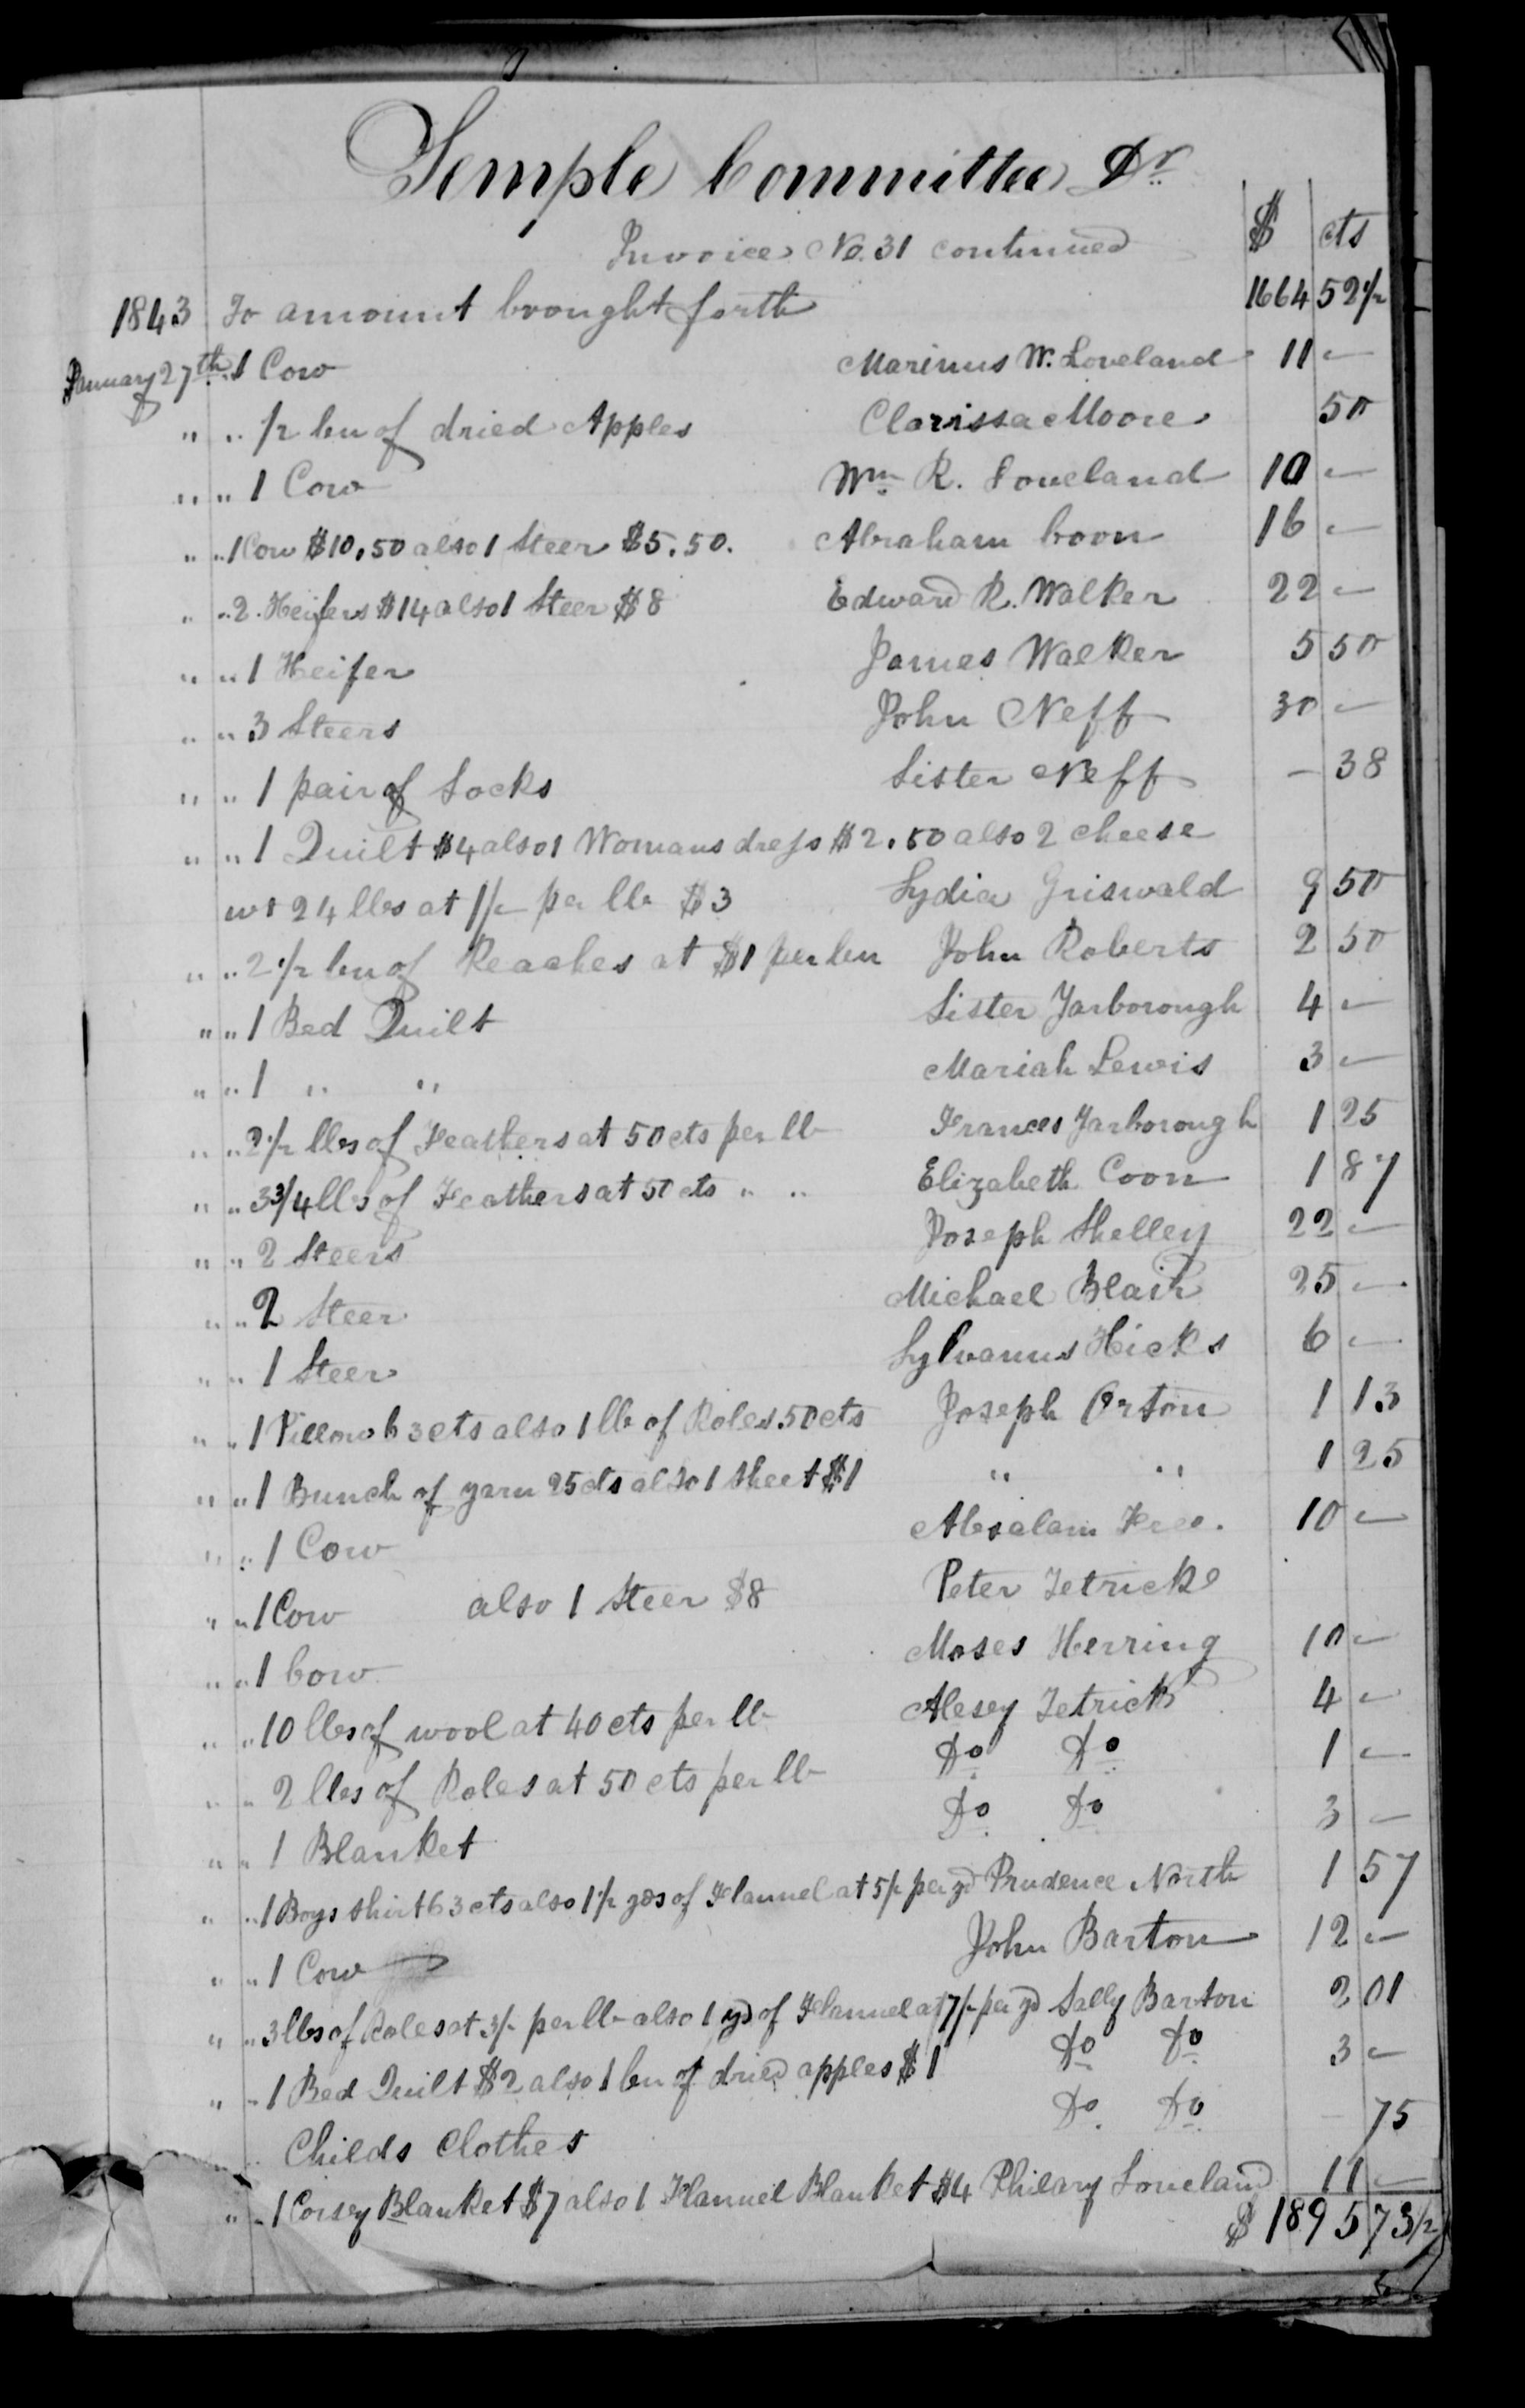 Temple Committee Dr
Invoice No. 31 continued $ cts
1843 To amount brought forth 1664 52 1/2
January 27th " 1 Cow Marinus W. Loveland 11 —
" " 1/2 bu of dried Apples Clarissa Moore 50
" " 1 Cow Wm R. Loveland 10 —
" " 1 Cow $10,50 also 1 Steer $5.50. Abraham Coon 16 —
" " 2 Heifers $14 also 1 Steer $8 Edward R. Walker 22 —
" " 1 Heifer James Walker 5 50
" " 3 Steers John Neff 30 —
" " 1 pair of Socks Sister Neff — 38
" " 1 Quilt $4 also 1 Womans dress $2.50 also 2 cheese
wt 24 lbs at 1/- per lb $3 Lydia Griswald 9 50
" " 2 1/2 bu of Peaches at $1 per bu John Roberts 2 50
" " 1 Bed Quilt Sister Yarborough 4 —
" " 1 " " Mariah Lewis 3 —
" " 2 1/2 lbs of Feathers at 50 cts per lb Frances Yarborough 1 25
" " 3 3/4 lbs of Feathers at 50 cts " " Elizabeth Coon 1 87
" " 2 Steers Joseph Shelley 22 —
" " 2 Steer Michael Blair 25 —
" " 1 Steer Sylvanus Hicks 6 —
" " 1 Pillow 63 cts also 1 lb of Roles 50 cts Joseph Orton 1 13
" " 1 Bunch of yarn 25 cts also 1 sheet $1 " " 1 25
" " 1 Cow Absalam Free. 10 —
" " 1 Cow also 1 Steer $8 Peter Tetricke
" " 1 Cow Moses Herring 10 —
" " 10 lbs of wool at 40 cts per lb Alesey Tetrick 4 —
" " 2 lbs of Roles at 50 cts per lb Do Do 1 —
" " 1 Blanket Do Do 3 —
" " 1 Boys shirt 63 cts also 1 1/2 yds of Flannel at 5/- per yd Prudence North 1 57
" " 1 Cow John Barton 12 —
" " 3 lbs of Roles at 3/- per lb also 1 yd of Flannel at 7/- per yd Sally Barton 2 01
" " 1 Bed Quilt $2 also 1 bu of dried apples $1 Do Do 3 —
Childs Clothes Do Do — 75
" " 1 Coisey Blanket $7 also 1 Flannel Blanket $4 Philary Loveland 11 —
$ 1895 73 1/2